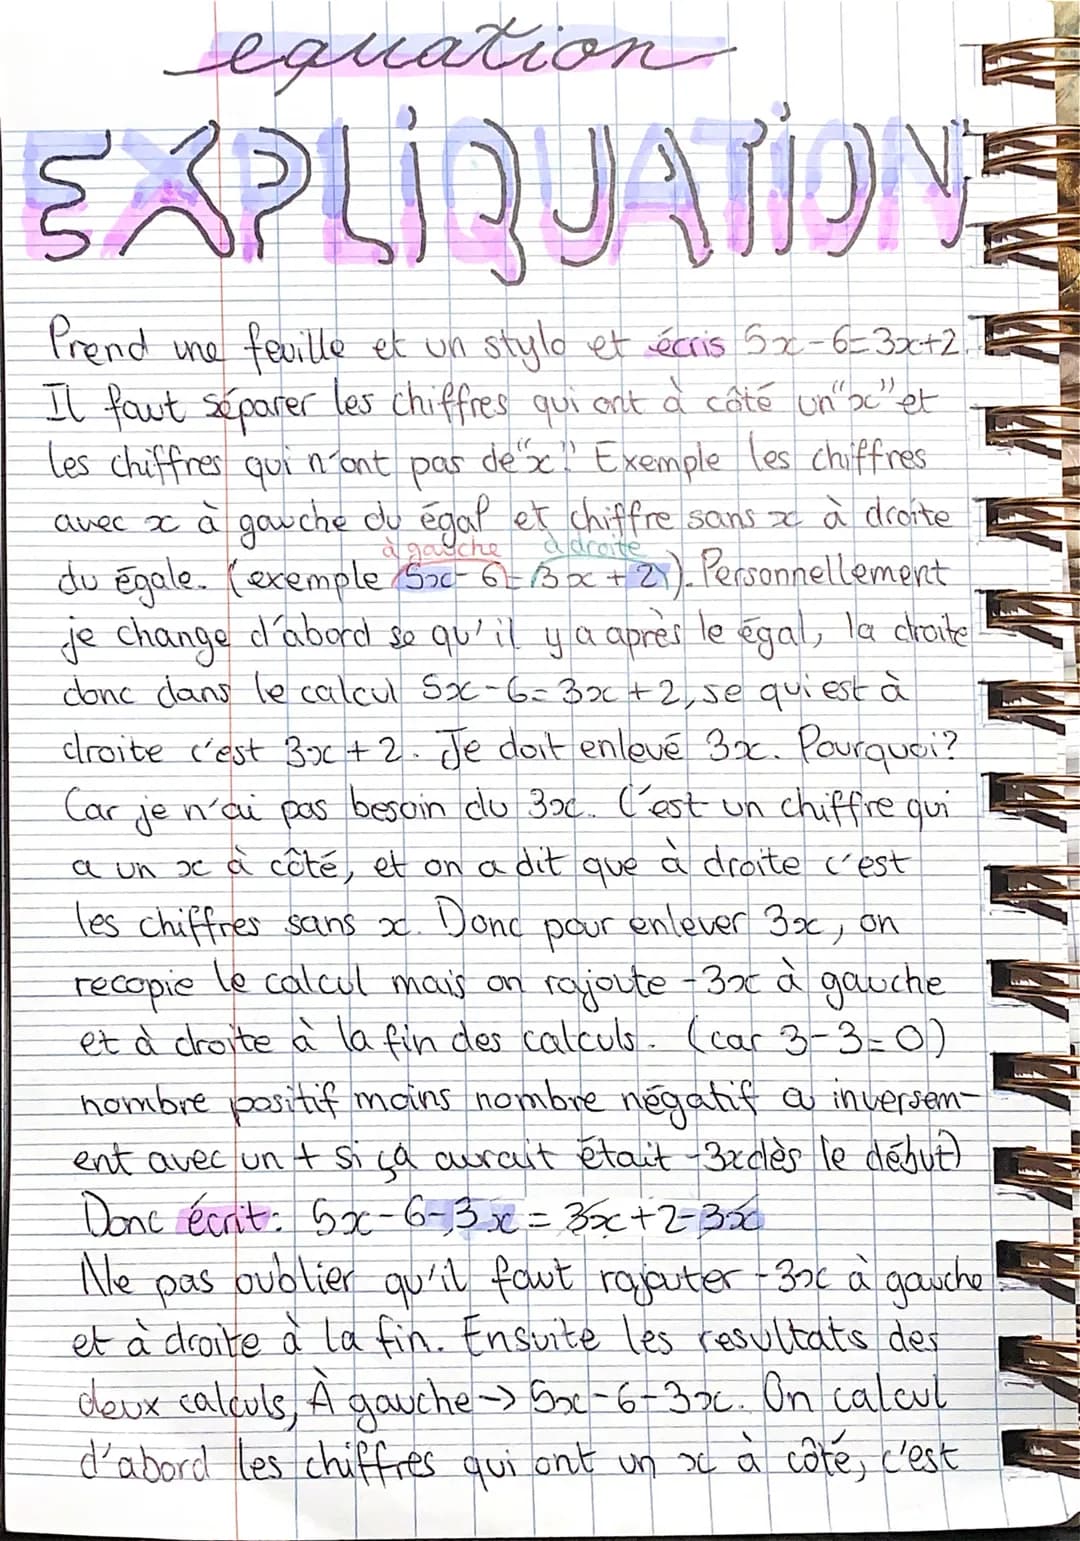 equation
EXPLiQUATiON
Prend une feuille et un stylo et écris 5x-6=3x+2.
Il faut séparer les chiffres qui ont à côté un "x" et
les chiffres qui n'ont pas de "x". Exemple les chiffres
avec x à gauche du égal et chiffre sans x à droite
à gauche à droite
du égale. (exemple 5x-6=3x+2). Personnellement
je change d'abord se qu'il y a après le égal, la droite
donc dans le calcul 5x-6=3x+2, se qui est à
droite c'est 3x+2. Je doit enlevé 3x. Pourquoi?
Car je n'ai pas besoin du 3x. C'est un chiffre qui
a un x à côté, et on a dit que à droite c'est
les chiffres sans x. Donc pour enlever 3x, on
recopie le calcul mais on rajoute -3x à gauche
et à droite à la fin des calculs. (car 3-3=0)
nombre positif moins nombre négatif a inversem-
ent avec un + si ça aurait était -3x dès le début)
Donc écrit: 5x-6-3x=3x+2-3x
Ne pas oublier qu'il faut rajouter -3x à gauche
et à droite à la fin. Ensuite les resultats des
deux calculs, À gauche → 5x-6-3x. On calcul
d'abord les chiffres qui ont un x à côté, c'est